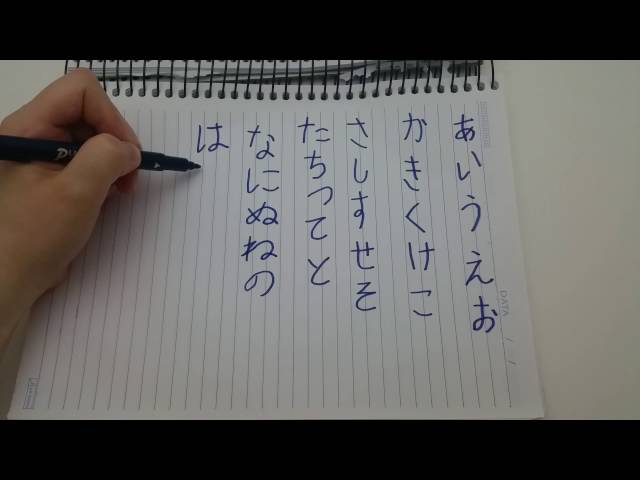 あいうえお
かきくけこ
さしすせそ
たちつてと
なにぬねの
は
DATA / /